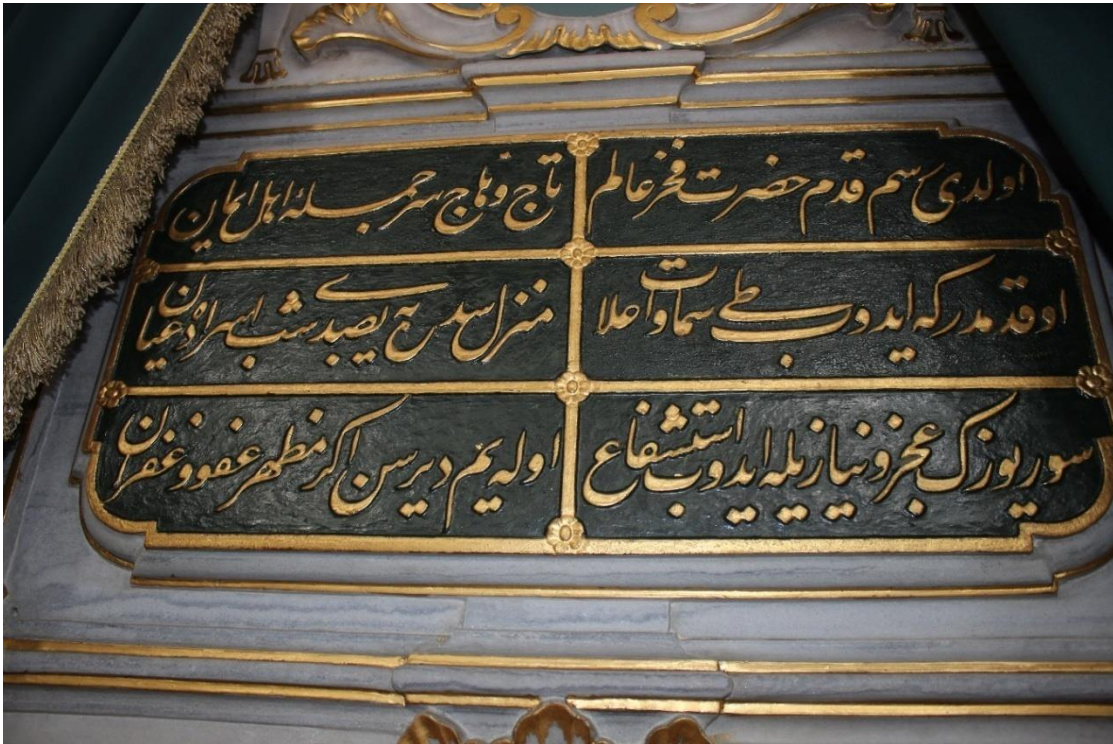 اولدى رسم قدم حضرت فخر عالم
تاج وهاج سر جملهٔ اهل ايمان
او قدمدر كه ايدوب طى سماوات علا
منزل سدره يه يصدى شب اسراده عيان
سور يوزك عجز و نياز يله ايدوب استشفاع
اوله يم ديرسن اكر مظهر عفو و غفران